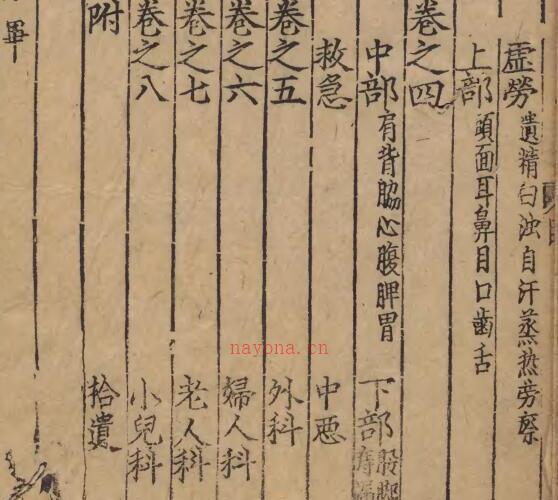 虛勞 遺精白浊自汗蒸热劳瘵
上部 頭面耳鼻目口齒舌
卷之四
中部 肩背脇心腹脾胃 下部 股脚
救急 中悪
卷之五 外科
卷之六 婦人科
卷之七 老人科
卷之八 小兒科
附 拾遺
畢
nayona.cn